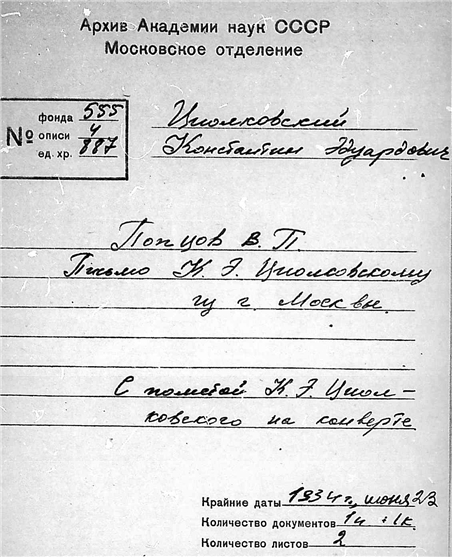 Архив Академии наук СССР
Московское отделение
№
фонда 555
описи 4
ед. хр. 887
Циолковский
Константин Эдуардович
Попцов В. П.
Письмо К. Э. Циолковскому
из г. Москвы.
С пометой К. Э. Циол-
ковского на конверте
Крайние даты 1934 г., июня 23
Количество документов 1 + 1к.
Количество листов 2